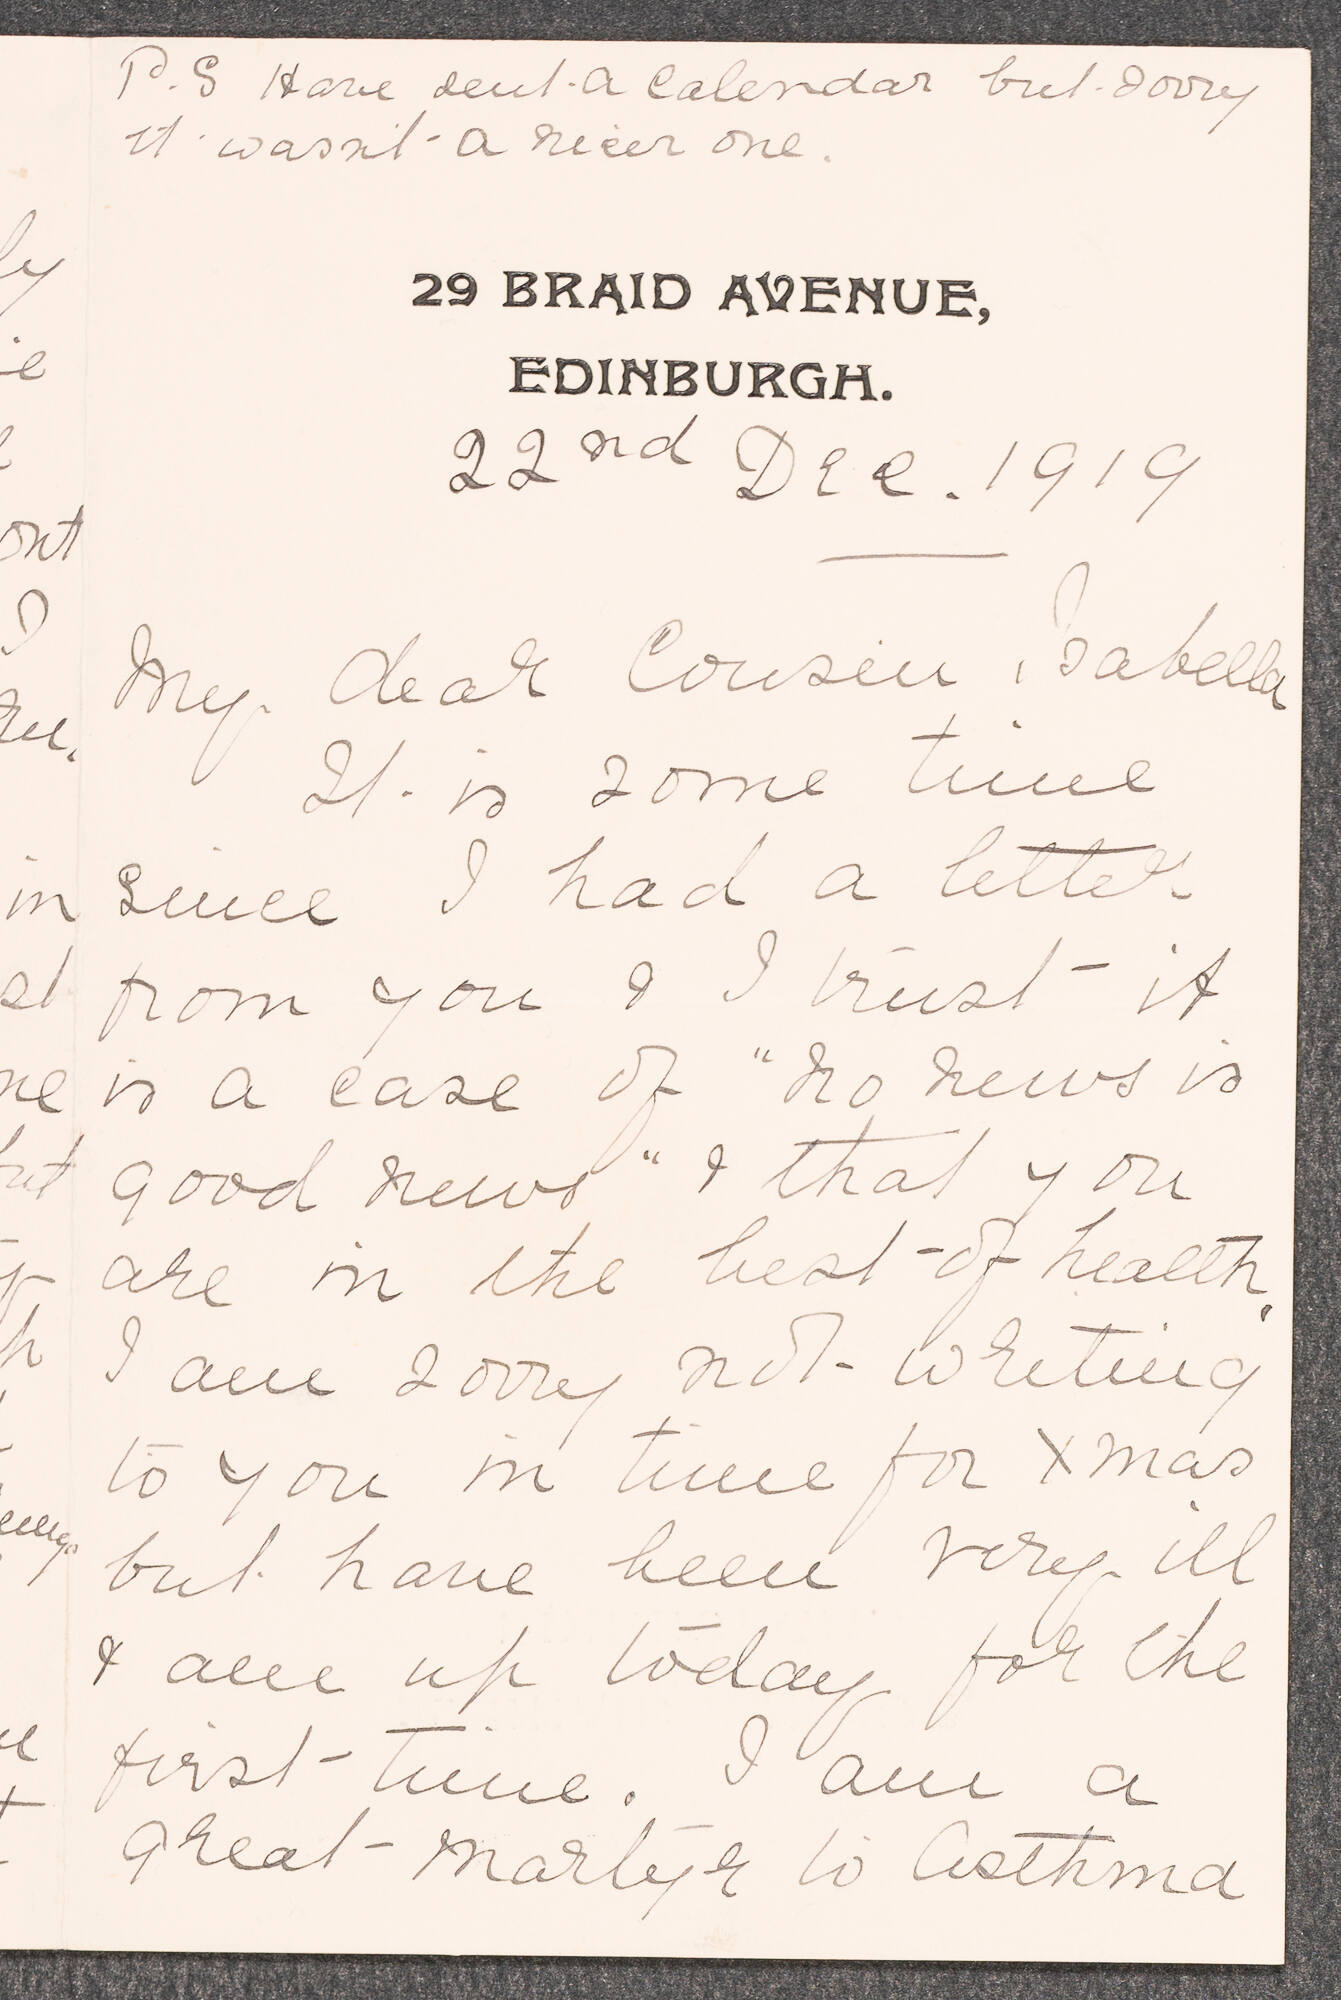 P.S Have sent a Calendar but sorry
it wasn't a nicer one.
29 BRAID AVENUE,
EDINBURGH.
22nd Dec. 1919
My dear Cousin Isabella
It is some time
since I had a letter
from you & I trust it
is a case of "no news is
good news" & that you
are in the best of health.
I am sorry not writing
to you in time for Xmas
but have been very ill
& am up today for the
first time. I am a
great martyr to Asthma